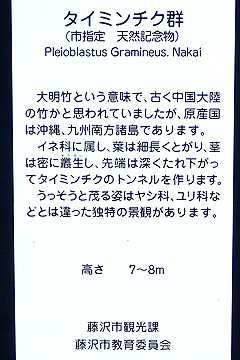 タイミンチク群
(市指定　天然記念物)
Pleioblastus Gramineus. Nakai
大明竹という意味で、古く中国大陸
の竹かと思われていましたが、原産国
は沖縄、九州南方諸島であります。
イネ科に属し、葉は細長くとがり、茎
は密に叢生し、先端は深くたれ下がっ
てタイミンチクのトンネルを作ります。
うっそうと茂る姿はヤシ科、ユリ科な
どとは違った独特の景観があります。
高さ　7〜8m
藤沢市観光課
藤沢市教育委員会